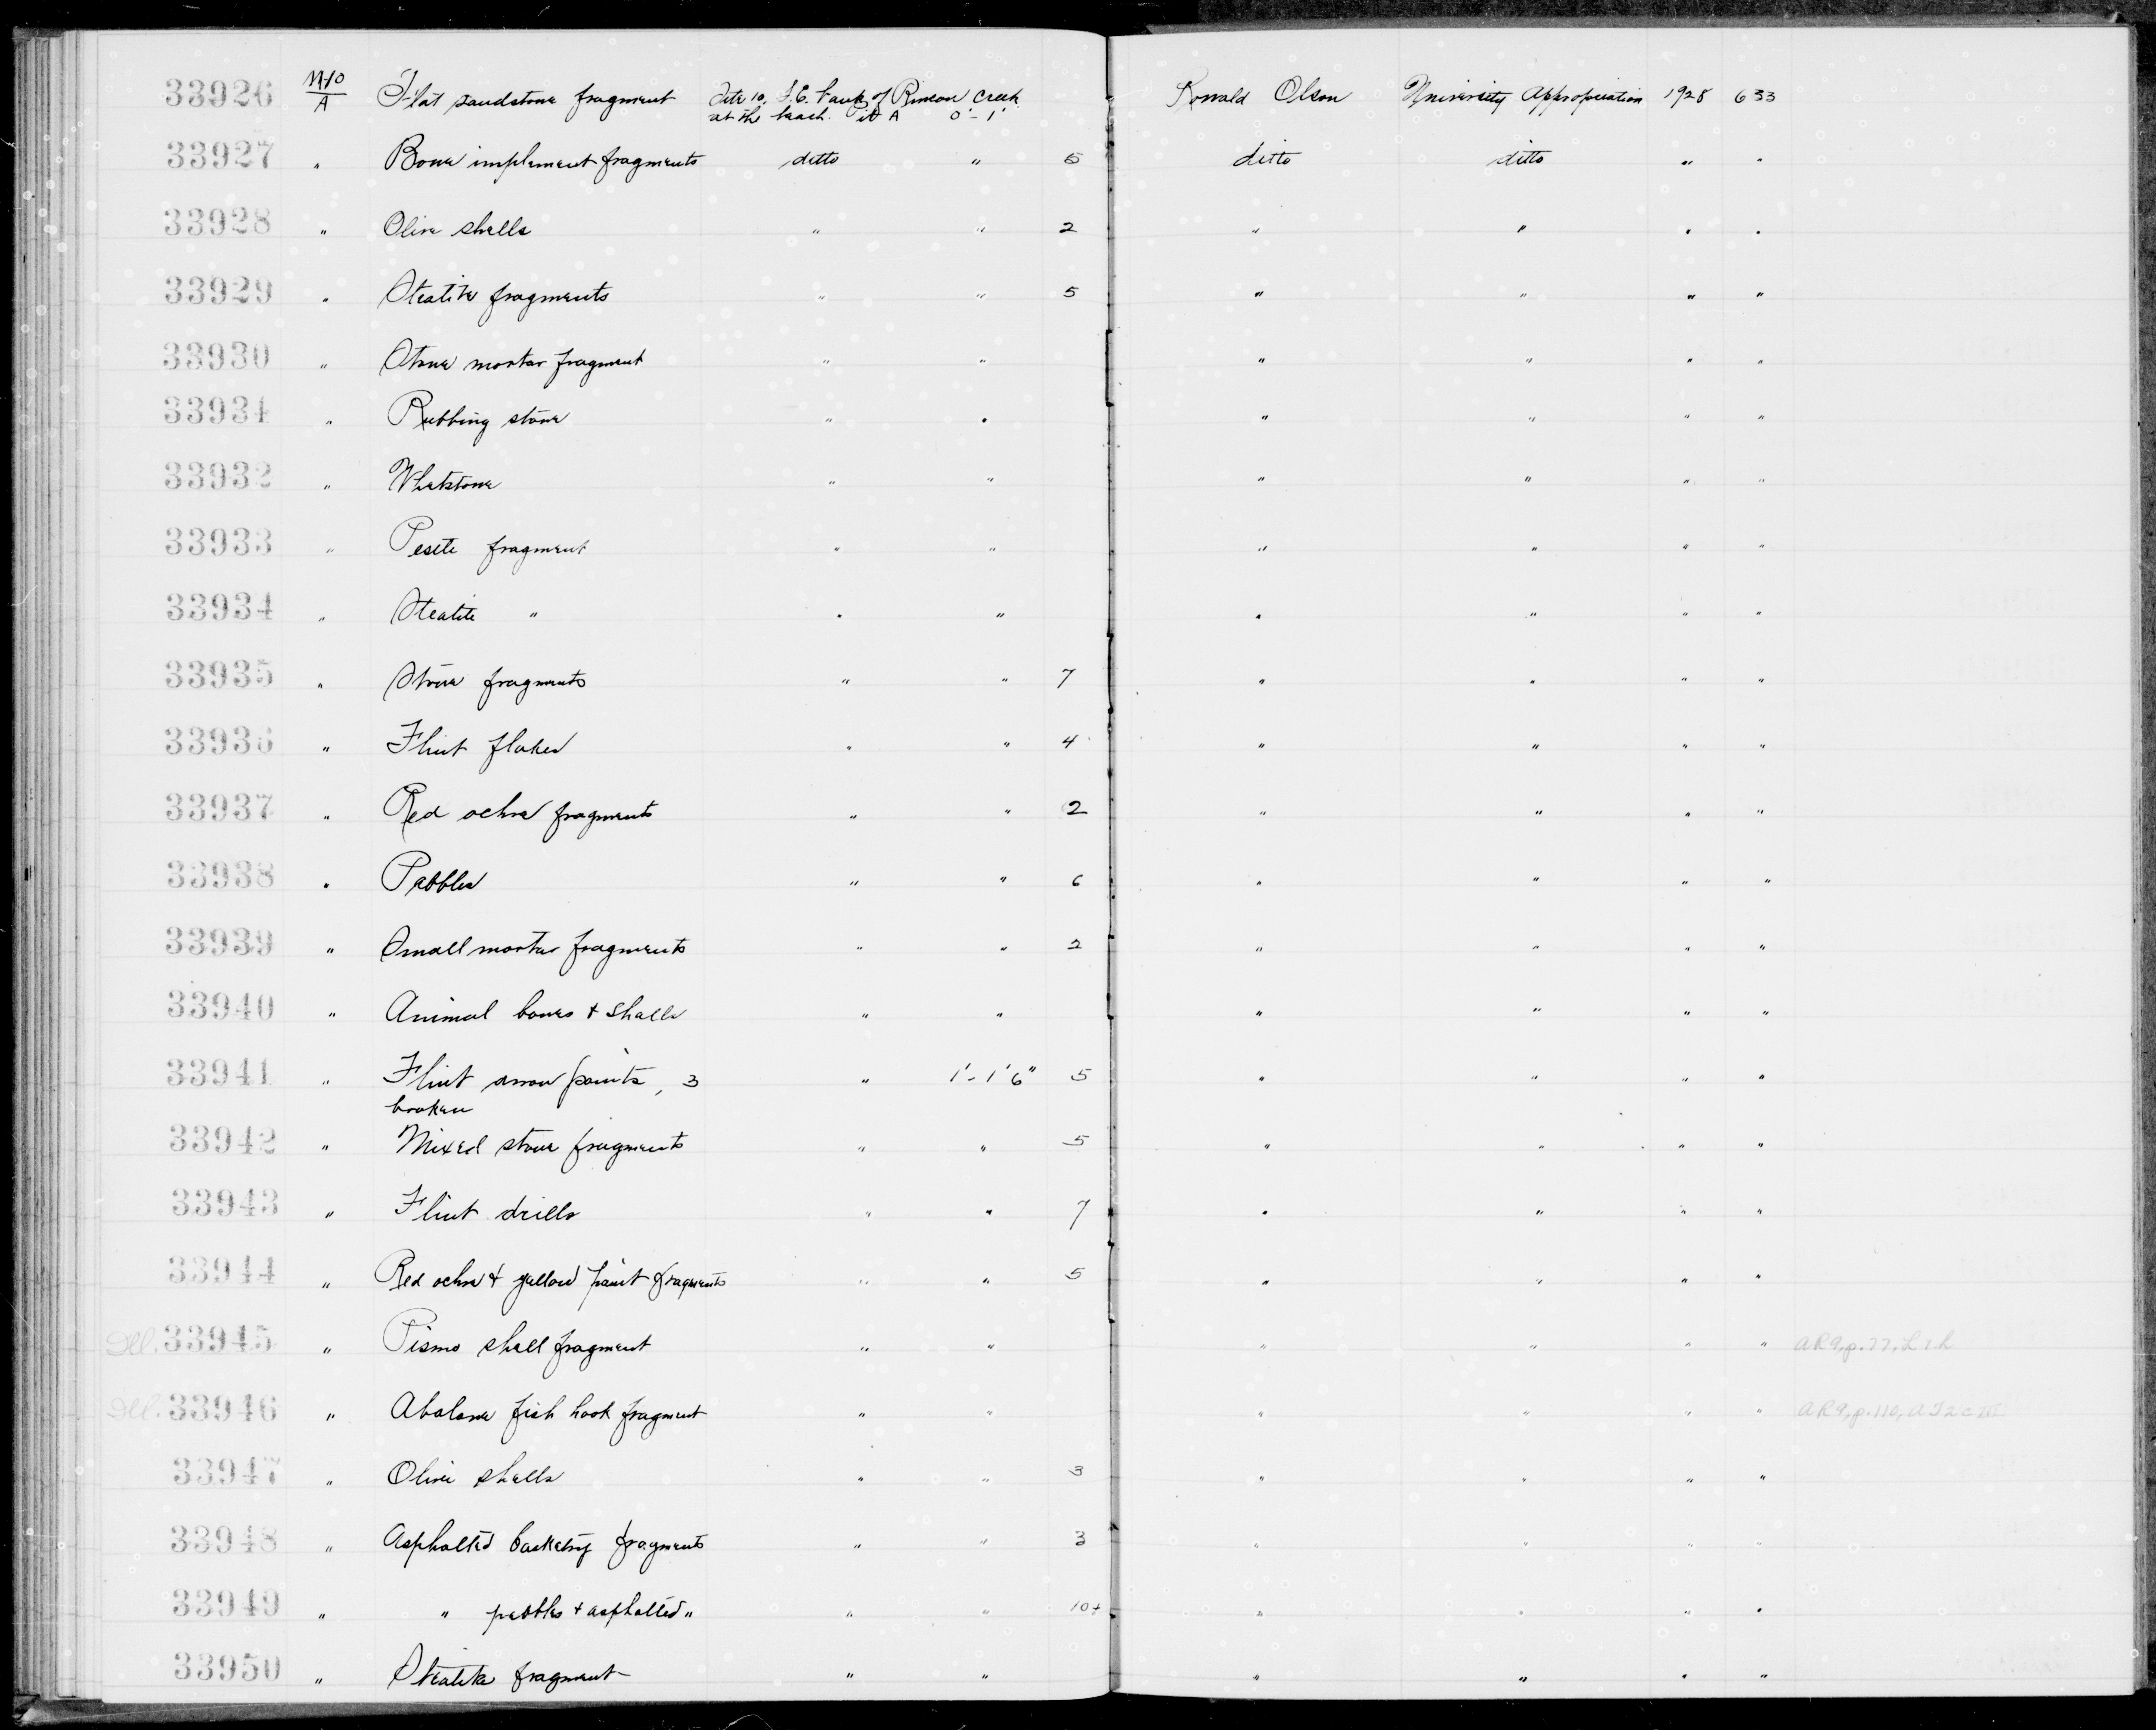 33926 M-10/A Flat sandstone fragment Site 10. S.E. bank of Rincon Creek Ronald Olson University Appropriation 1928 633
at the beach. Pit A 0'-1'
33927 " Bone implement fragments ditto " 5 ditto ditto " "
33928 " Olive shells " " 2 " " " "
33929 " Steatite fragments " " 5 " " " "
33930 " Stone mortar fragment " " " " " "
33931 " Rubbing stone " " " " " "
33932 " Whetstone " " " " " "
33933 " Pestle fragment " " " " " "
33934 " Steatite " " " " " " "
33935 " Stone fragments " " 7 " " " "
33936 " Flint flakes " " 4 " " " "
33937 " Red ochre fragments " " 2 " " " "
33938 " Pebbles " " 6 " " " "
33939 " Small mortar fragments " " 2 " " " "
33940 " Animal bones + shells " " " " " "
33941 " Flint arrow points, 3 " 1'-1'6" 5 " " " "
broken
33942 " Mixed stone fragments " " 5 " " " "
33943 " Flint drills " " 7 " " " "
33944 " Red ochre + yellow paint fragments " " 5 " " " "
Ill. 33945 " Pismo shell fragment " " " " " " AR9, p.77, L1h
Ill. 33946 " Abalone fish hook fragment " " " " " " AR9, p.110, AI2cIII
33947 " Olive shells " " 3 " " " "
33948 " Asphalted basketry fragments " " 3 " " " "
33949 " " pebbles + asphalted " " " 10+ " " " "
33950 " Steatite fragment " " " " " "